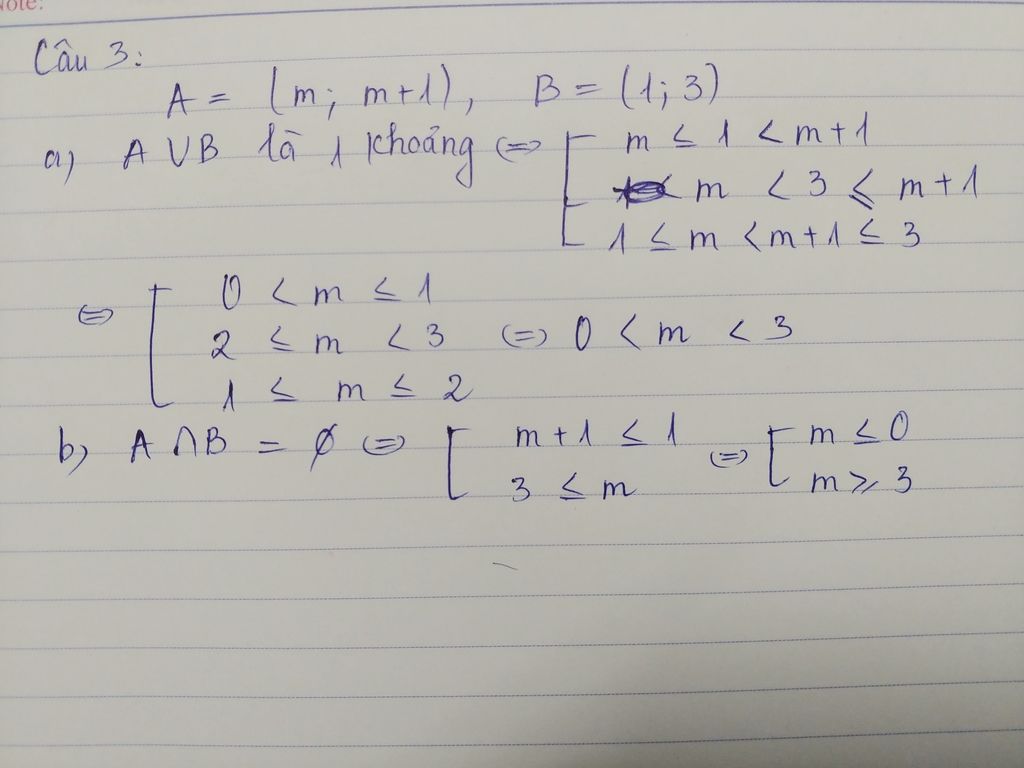 Note:
Câu 3:
A = (m; m+1), B = (1; 3)
a, A ∪ B là 1 khoảng <=> [ m ≤ 1 < m+1
m < 3 ≤ m+1
1 ≤ m < m+1 ≤ 3
<=> [ 0 < m ≤ 1
2 ≤ m < 3 <=> 0 < m < 3
1 ≤ m ≤ 2
b, A ∩ B = ∅ <=> [ m+1 ≤ 1 <=> [ m ≤ 0
3 ≤ m m ≥ 3